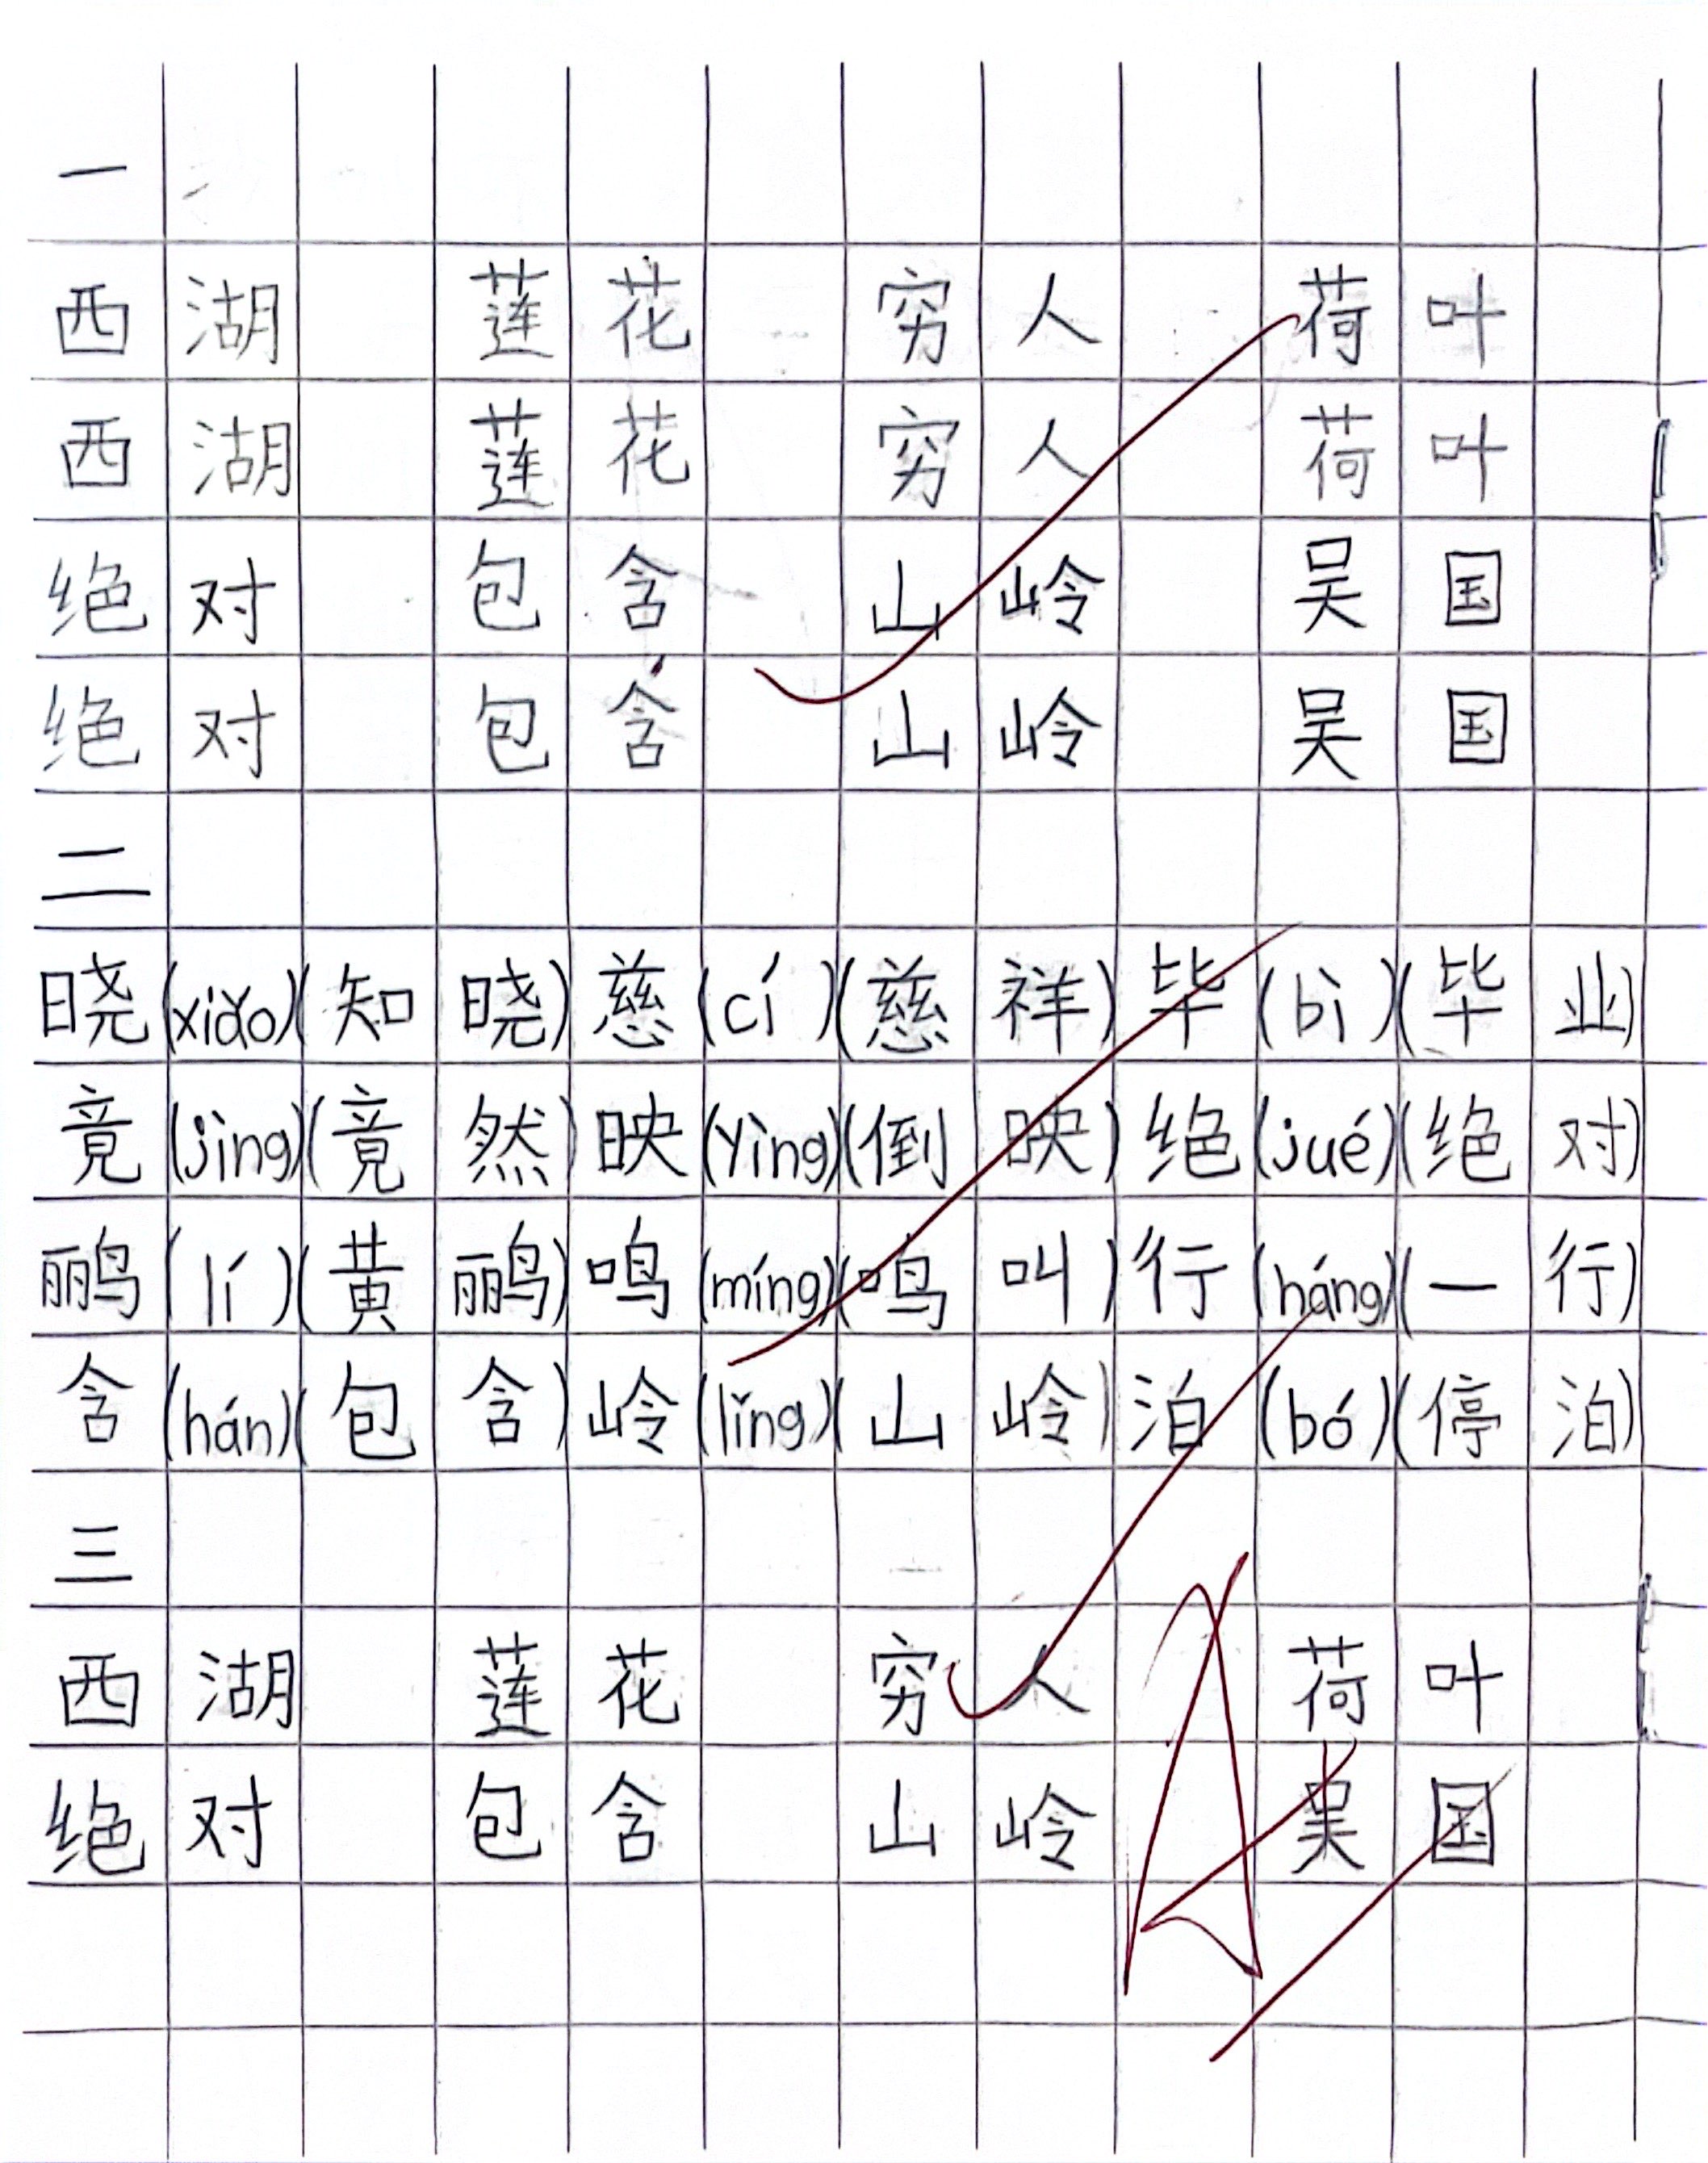 一
西湖 莲花 穷人 荷叶
西湖 莲花 穷人 荷叶
绝对 包含 山岭 吴国
绝对 包含 山岭 吴国
二
晓(xiǎo)(知晓)慈(cí)(慈祥)毕(bì)(毕业)
竟(jìng)(竟然)映(yìng)(倒映)绝(jué)(绝对)
鹂(lí)(黄鹂)鸣(míng)(鸣叫)行(háng)(一行)
含(hán)(包含)岭(lǐng)(山岭)泊(bó)(停泊)
三
西湖 莲花 穷人 荷叶
绝对 包含 山岭 吴国
A